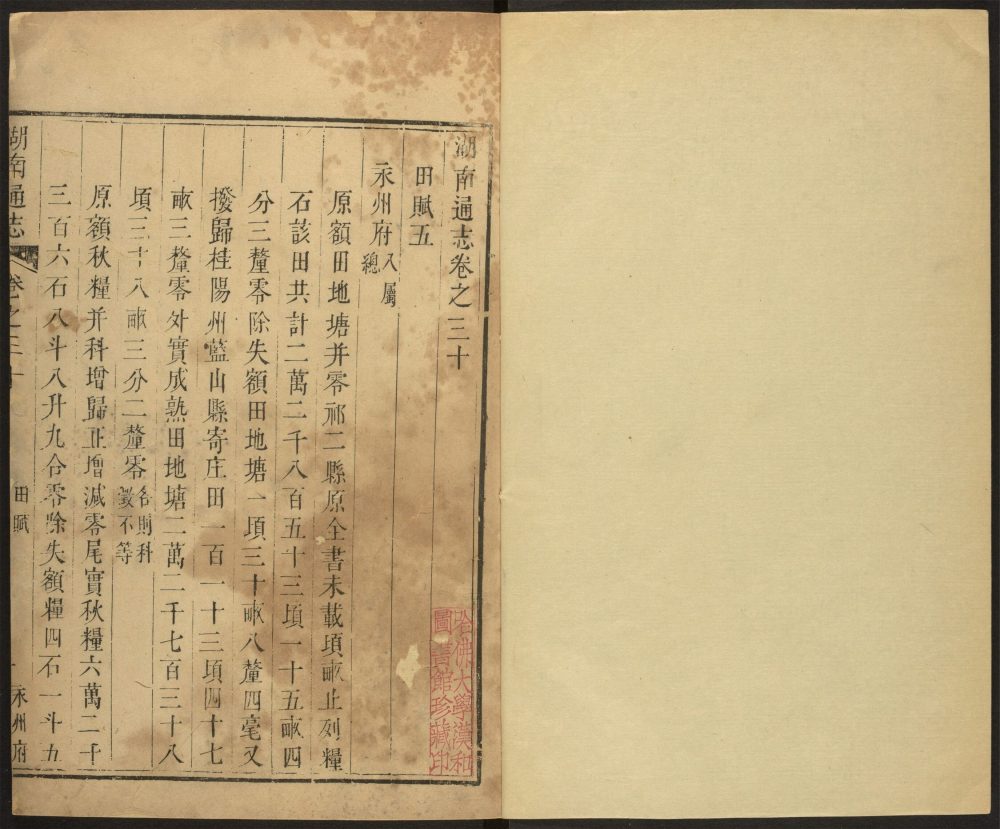 湖南通志卷之三十
田賦五
永州府八屬總
原額田地塘并零祁二縣原全書未載頃畝止列糧
石該田共計二萬二千八百五十三頃一十五畝四
分三釐零除失額田地塘一頃三十畝八釐四毫又
撥歸桂陽州藍山縣寄庄田一百一十三頃四十七
畝三釐零外實成熟田地塘二萬二千七百三十八
頃三十八畝三分二釐零各則科徵不等
原額秋糧并科增歸正增減零尾實秋糧六萬二千
三百六石八斗八升九合零除失額糧四石一斗五
湖南通志
卷之三十
田賦
永州府
哈佛大學漢和
圖書館珍藏印